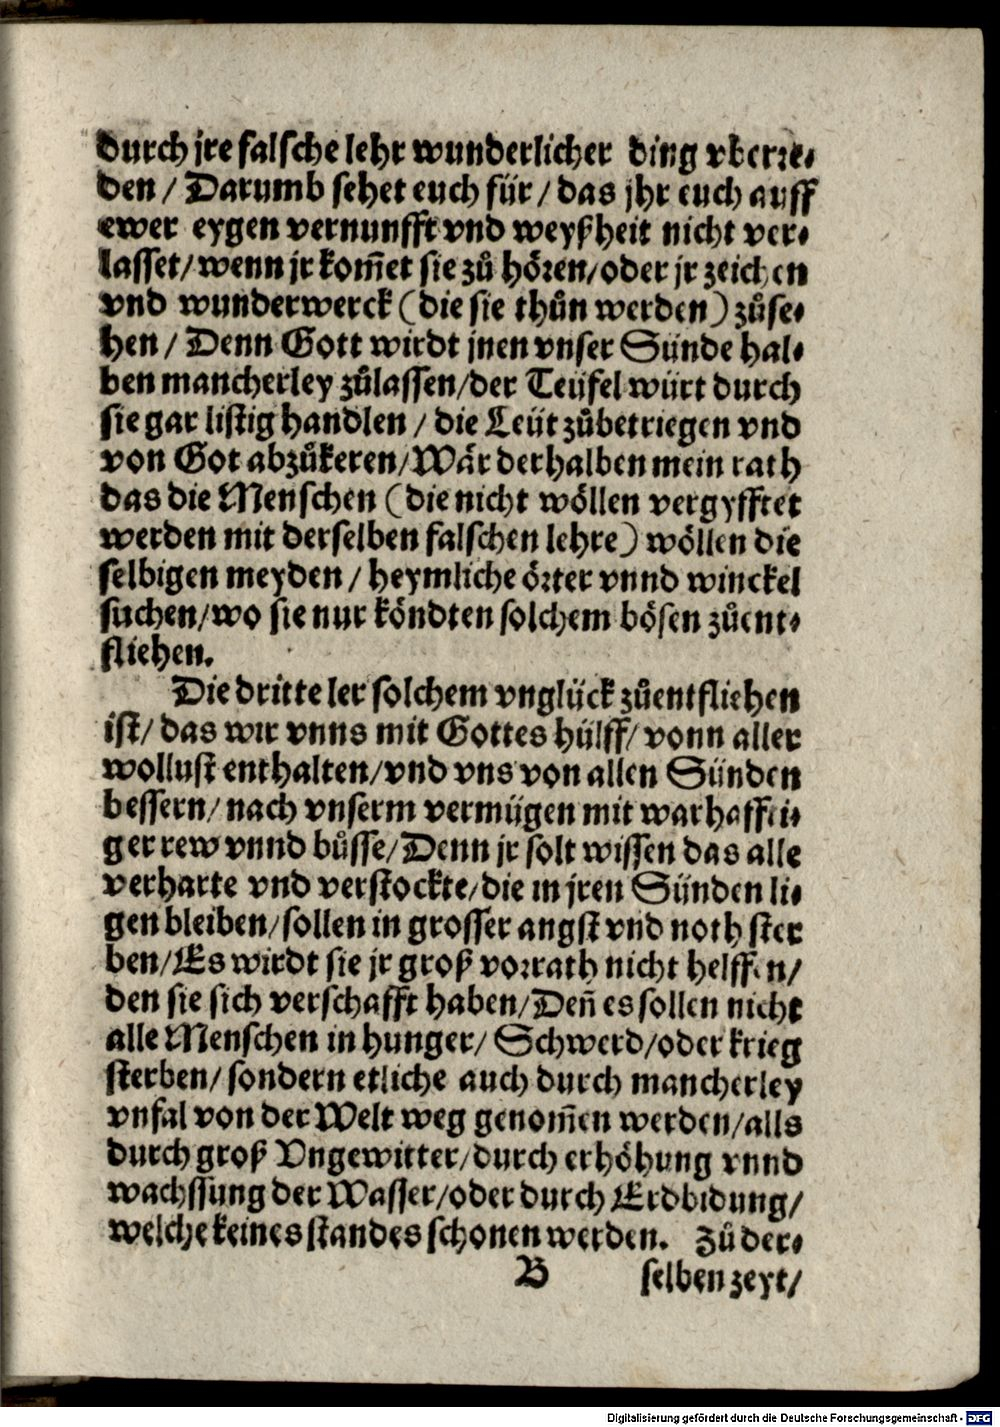 durch jre falsche lehr wunderlicher ding vberre⸗
den / Darumb sehet euch für / das jhr euch auff
ewer eygen vernunfft vnd weyßheit nicht ver⸗
lasset/ wenn jr kom̃et sie zů hören/ oder jr zeichen
vnd wunderwerck (die sie thůn werden) zůse⸗
hen / Denn Gott wirdt jnen vnser Sünde hal⸗
ben mancherley zůlassen/ der Teüfel würt durch
sie gar listig handlen / die Leüt zůbetriegen vnd
von Got abzůkeren/ Wär derhalben mein rath
das die Menschen (die nicht wöllen vergyfftet
werden mit derselben falschen lehre) wöllen die
selbigen meyden / heymliche örter vnnd winckel
suchen/ wo sie nur köndten solchem bösen zůent⸗
fliehen.
Die dritte ler solchem vnglück zůentfliehen
ist/ das wir vnns mit Gottes hülff/ vonn aller
wollust enthalten/ vnd vns von allen Sünden
bessern/ nach vnserm vermügen mit warhaffti⸗
ger rew vnnd bůsse/ Denn jr solt wissen das alle
verharte vnd verstockte/ die in jren Sünden li⸗
gen bleiben/ sollen in grosser angst vnd noth ster
ben/ Es wirdt sie jr groß vorrath nicht helffen/
den sie sich verschafft haben/ Deñ es sollen nicht
alle Menschen in hunger/ Schwerd/ oder krieg
sterben/ sondern etliche auch durch mancherley
vnfal von der Welt weg genom̃en werden/ alls
durch groß Vngewitter/ durch erhöhung vnnd
wachssung der Wasser/ oder durch Erdbidung/
welche keines standes schonen werden. Zů der⸗
B selben zeyt/
Digitalisierung gefördert durch die Deutsche Forschungsgemeinschaft - DFG